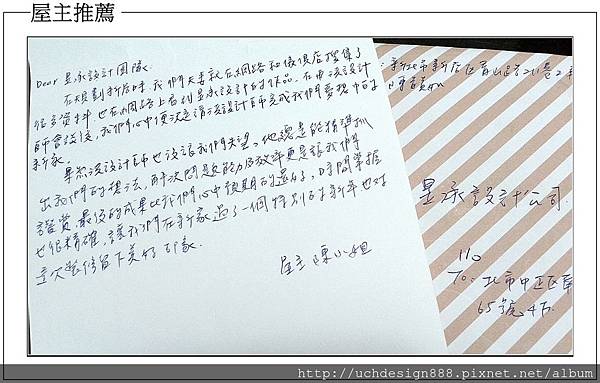 屋主推薦
Dear 昱承設計團隊:
在規劃新房時,我們夫妻就在網路和傢俱店蒐集了
很多資料,也在網路上看到昱承設計的作品。在申浚設計
師會談後,我們心中便決定請浚設計師完成我們夢想中的
新家。
果然浚設計師也沒讓我們失望。他總是能精準抓
出我們的想法,解決問題的能力及效率更是讓我們
讚賞。最後的成果比我們心中預期的還好,時間掌握
也很精確,讓我們在新家過了一個特別的新年也對
這次裝修留下美好印象.
屋主 陳小姐
:新北市新店区
昱承設計公司.
110
To: 北市中正区
65號4F.
http://uchdesign888.pixnet.net/album